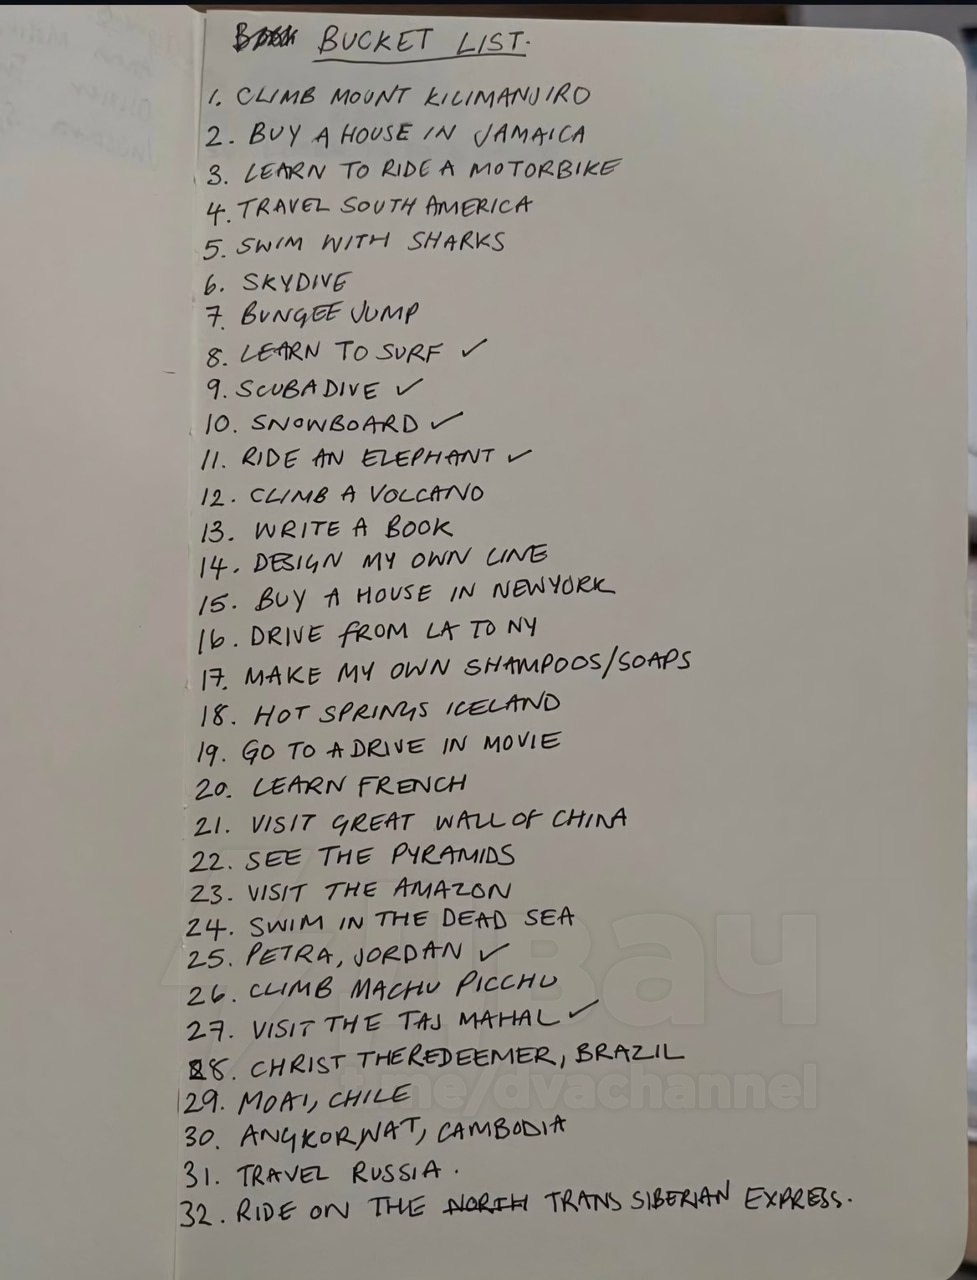 BUCKET LIST.
1. CLIMB MOUNT KILIMANJIRO
2. BUY A HOUSE IN JAMAICA
3. LEARN TO RIDE A MOTORBIKE
4. TRAVEL SOUTH AMERICA
5. SWIM WITH SHARKS
6. SKYDIVE
7. BUNGEE JUMP
8. LEARN TO SURF ✓
9. SCUBA DIVE ✓
10. SNOWBOARD ✓
11. RIDE AN ELEPHANT ✓
12. CLIMB A VOLCANO
13. WRITE A BOOK
14. DESIGN MY OWN LINE
15. BUY A HOUSE IN NEWYORK
16. DRIVE FROM LA TO NY
17. MAKE MY OWN SHAMPOOS/SOAPS
18. HOT SPRINGS ICELAND
19. GO TO A DRIVE IN MOVIE
20. LEARN FRENCH
21. VISIT GREAT WALL OF CHINA
22. SEE THE PYRAMIDS
23. VISIT THE AMAZON
24. SWIM IN THE DEAD SEA
25. PETRA, JORDAN ✓
26. CLIMB MACHU PICCHU
27. VISIT THE TAJ MAHAL ✓
28. CHRIST THE REDEEMER, BRAZIL
29. MOAI, CHILE
30. ANGKOR WAT, CAMBODIA
31. TRAVEL RUSSIA.
32. RIDE ON THE NORTH TRANS SIBERIAN EXPRESS.